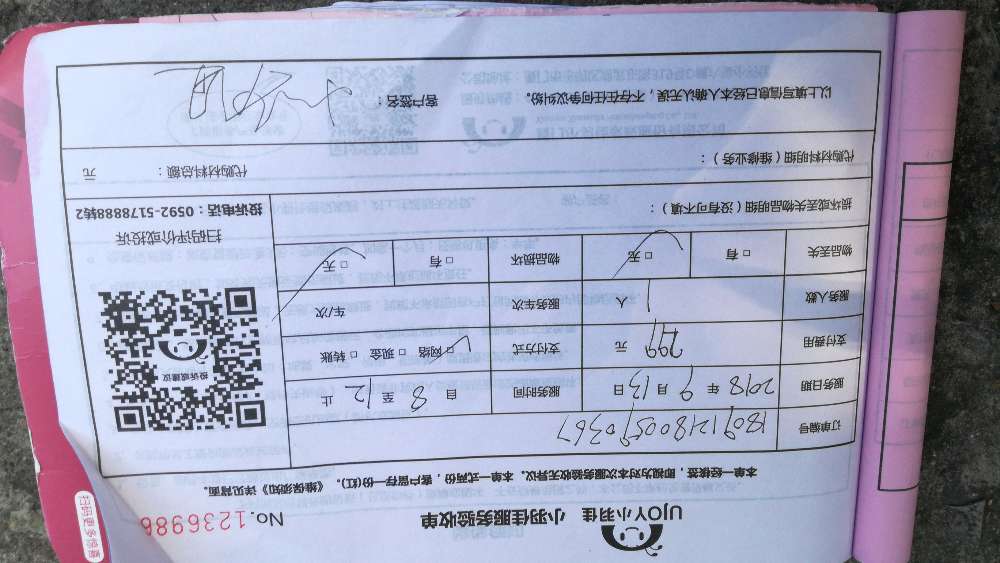 UJOY小羽佳 小羽佳服务验收单 No.1236986
本单一经接签，即视为对本次服务验收无异议。本单一式两份，客户留存一份(红)。《维保须知》详见背面。
订单编号 180912180050367
服务日期 2018年9月13日 服务时间 自8至12止
支付费用 299元 支付方式 □网络 □现金 □转账
服务人数 1人 服务车次 车/次
物品丢失 □有 □无 物品损坏 □有 □无
投诉或建议
扫码评价或投诉
投诉电话：0592-5178888转2
损坏或丢失物品明细（没有可不填）：
代购材料明细（维修业务）： 代购材料总额： 元
以上填写信息已经本人确认无误，不存在任何争议纠纷。 客户签名：
扫码更多惊喜